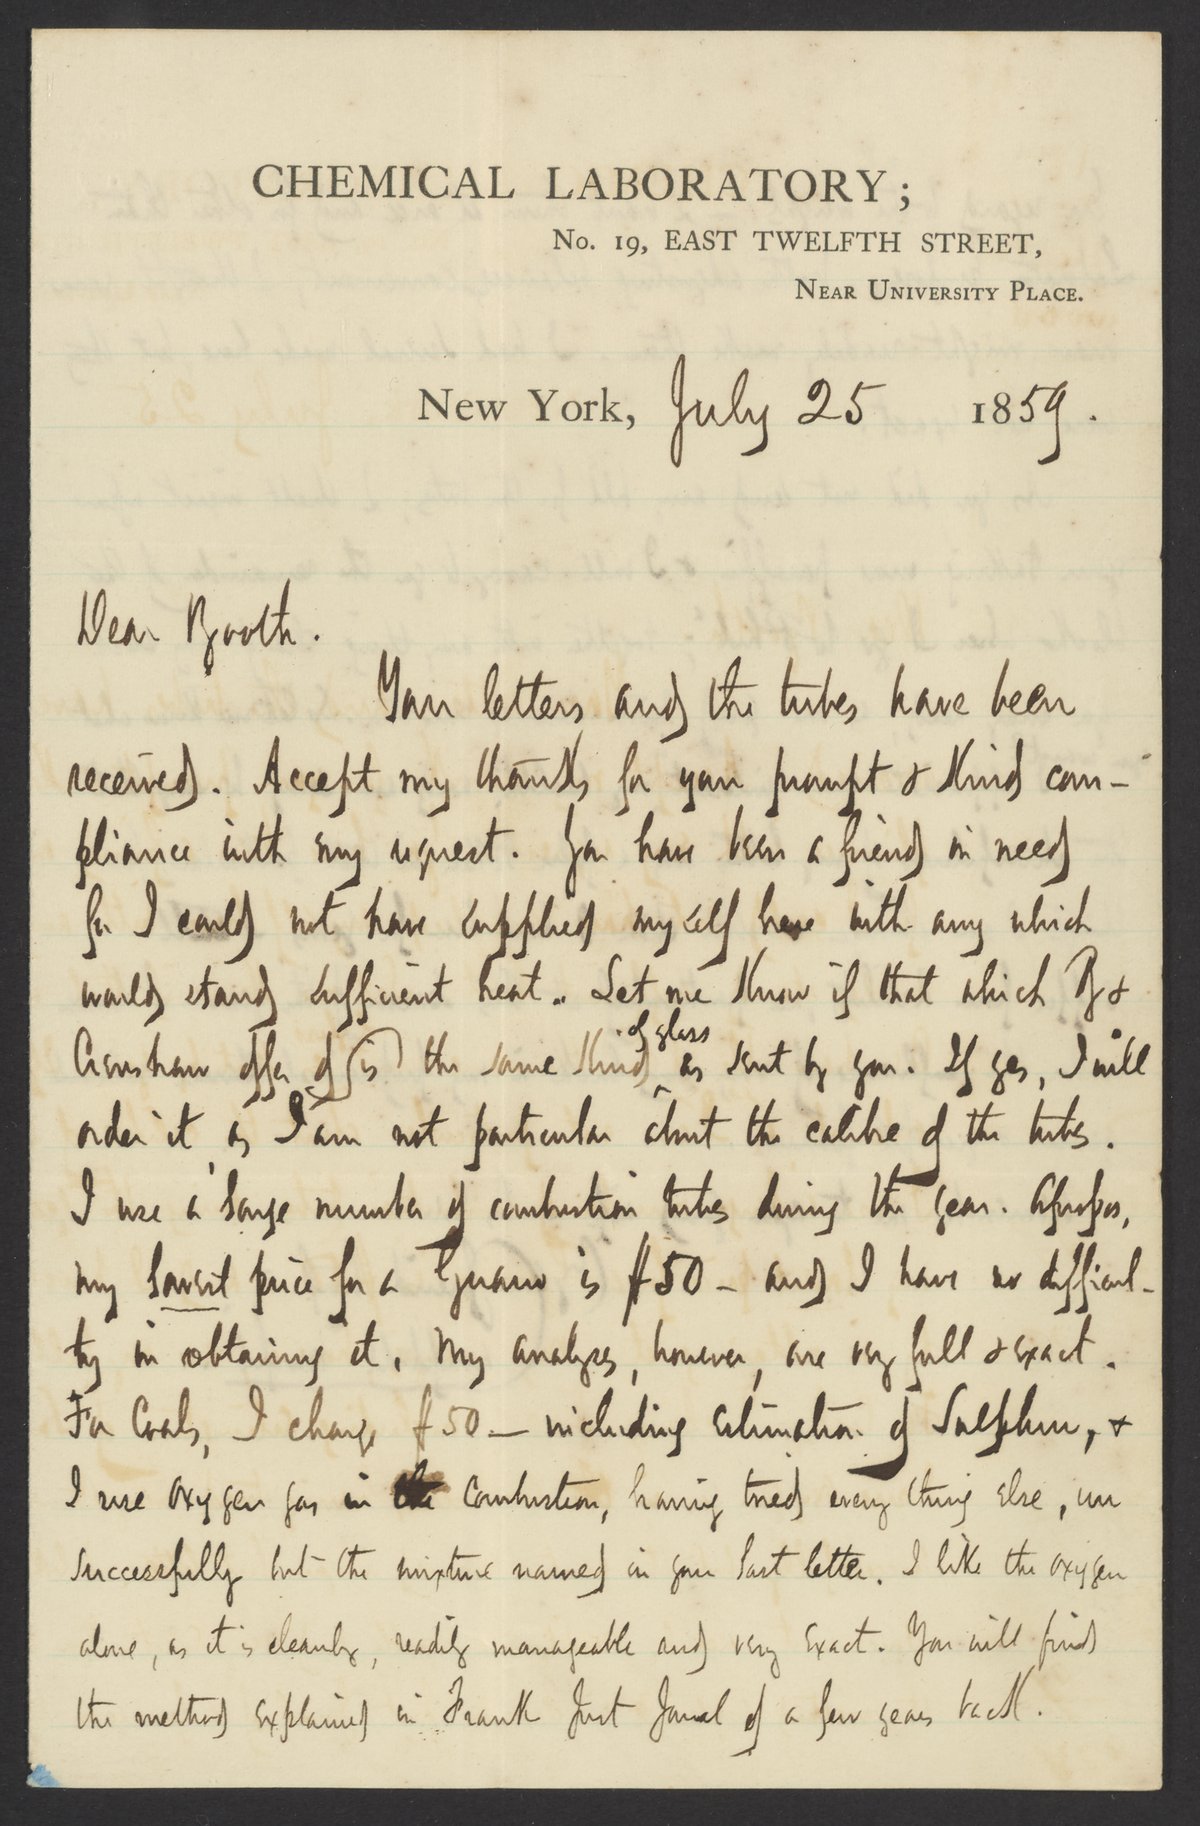 CHEMICAL LABORATORY;
No. 19, EAST TWELFTH STREET,
NEAR UNIVERSITY PLACE.
New York, July 25 1859.
Dear Booth.
Your letters and the tubes have been
received. Accept my thanks for your prompt & kind com-
pliance with my request. You have been a friend in need
for I could not have supplied myself here with any which
would stand sufficient heat. Let me know if that which B &
of glass
Crenshaw offer is the same kind as sent by you. If yes, I will
order it as I am not particular about the calibre of the tubes.
I use a large number of combustion tubes during the year. Apropos,
my lowest price for a Guano is $50 – and I have no difficul-
ty in obtaining it. My analyses, however, are very full & exact.
For Coals, I charge $50 — including estimation of Sulphur, &
I use oxygen gas in the combustion, having tried every thing else, un
successfully but the mixture named in your last letter. I like the oxygen
alone, as it is cleanly, readily manageable and very exact. You will find
the method explained in Frank Inst Journal of a few years back.